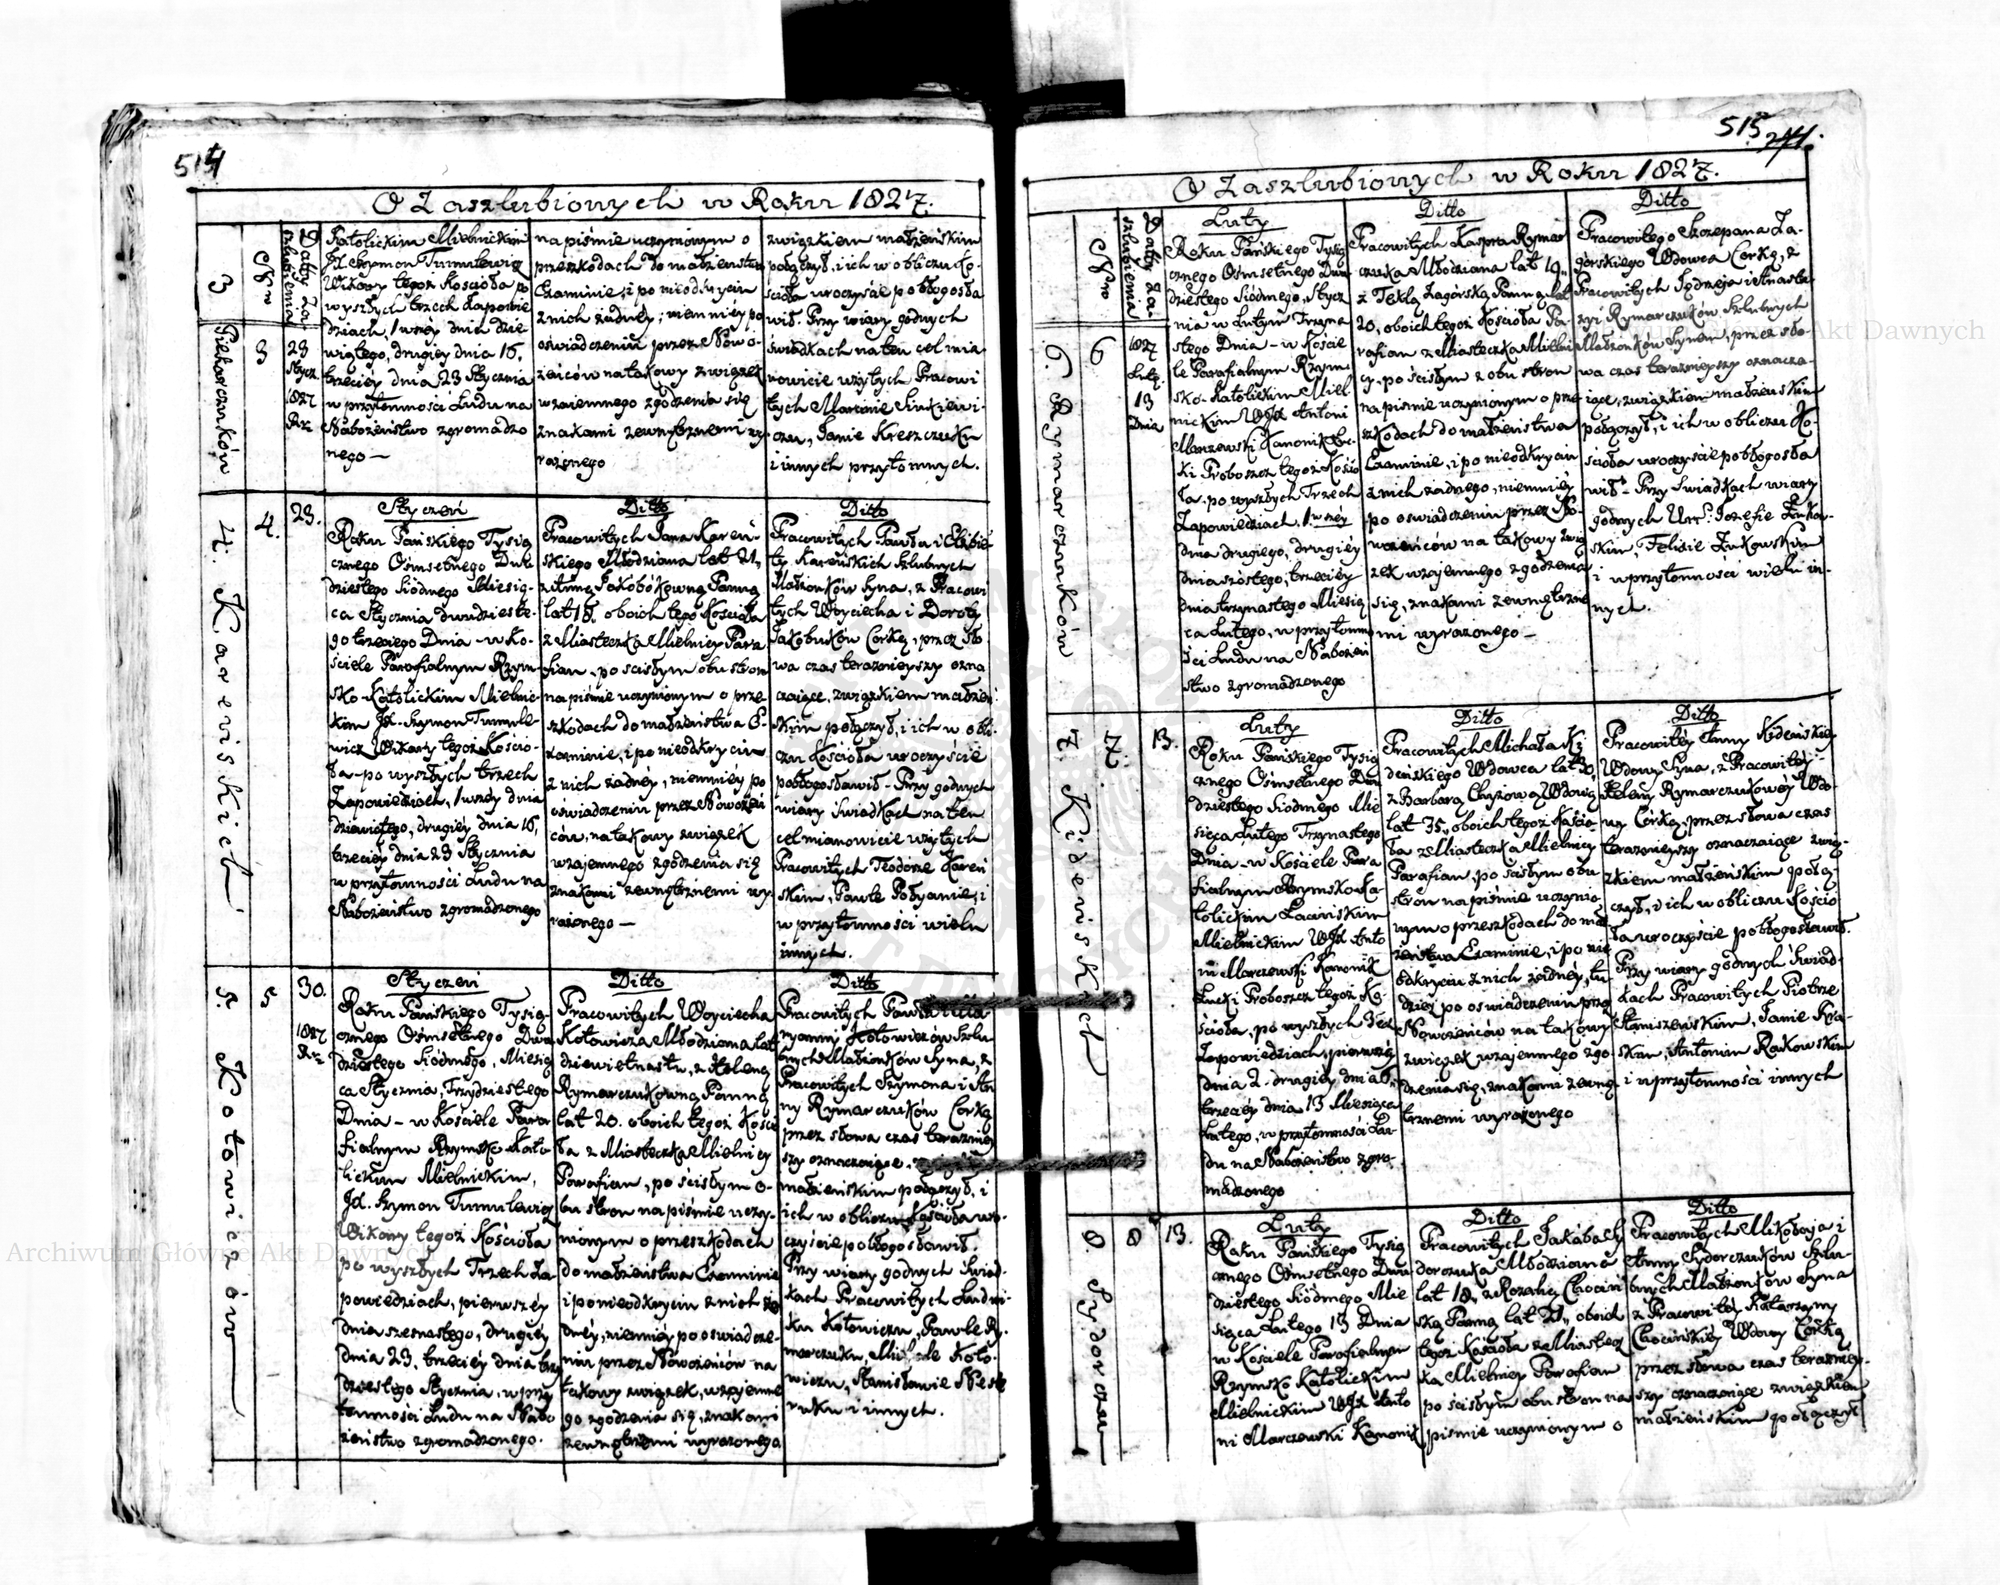 514
O Zaszlubionych w Roku 1827.
Nro
Daty Za-
szlubienia
3
Pietraszuków
3
23
Stycz.
1827
Ru
Katolickim Mielnickim
Jx Szymon Tumulewicz
Wikary tegoż Kościoła po
wyszłych trzech Zapowie
dziach, 1wszéy dnia dzie
wiątego, drugiéy dnia 16,
trzeciéy dnia 23 Stycznia
w przytomności Ludu na
Nabożeństwo zgromadzo
nego —
na piśmie uczynionym o
przeszkodach do małżeństwa
Examinie, i po nieodkryciu
z nich żadnéy; niemniéy po
oświadczeniu przez Nowo-
żeńców na takowy związek
wzaiemnego zgodzenia się
znakami zewnętrznemi wy-
rażonego
związkiem małżeńskim
połączył, i ich w obliczu Ko-
ścioła uroczyście pobłogosła
wił. Przy wiary godnych
świadkach na ten cel mia-
nowicie użytych Pracowi
tych Marcinie Sinkiewi-
czu, Janie Kreszczuku
i innych przytomnych.
4. Kareńskich
4.
23.
Styczeń
Roku Pańskiego Tysią
cznego Ośmsetnego Dwu
dziestego Siódmego Miesią-
ca Stycznia dwudzieste-
go trzeciego Dnia - w Ko-
ściele Parafialnym Rzym-
sko-Katolickim Mielnic-
kim Jx. Szymon Tumule-
wicz Wikary tegoż Kościo-
ła - po wyszłych trzech
Zapowiedziach, 1wszéy dnia
dziewiątego, drugiéy dnia 16,
trzeciéy dnia 23 Stycznia
w przytomności Ludu na
Nabożeństwo zgromadzonego
Ditto
Pracowitych Jana Kareń-
skiego Młodziana lat 21,
z Anną Jakobókowną Panną
lat 18, oboich tego Kościoła
z Miasteczka Mielnicy Para
fian, po scisłym obu stron
na piśmie uczynionym o prze-
szkodach do małżeństwa E-
xaminie, i po nieodkryciu
z nich żadnéy, niemniéy po
oświadczeniu przez Nowożeń
ców, na takowy związek
wzajemnego zgodzenia się
znakami zewnętrznemi wy
rażonego —
Ditto
Pracowitych Pawła i Elżbie-
ty Kareńskich Szlubnych
Małżonków Syna, z Pracowi
tych Woyciecha i Doroty
Jakobuków Córką, przez sło
wa czas teraznieyszy ozna
czaiące, związkiem małżeń-
skim połączył, i ich w obli-
czu Kościoła uroczyście
pobłogosławił - Przy godnych
wiary Świadkach na ten
cel mianowicie użytych
Pracowitych Teodorze Kareń
skim, Pawle Połyanie, i
w przytomności wielu
innych.
5. Kotowiczów
5
30.
1827
Ru
Styczeń
Roku Pańskiego Tysią-
cznego Ośmsetnego Dwa
dziestego Siódmego, Miesią
ca Stycznia, Trzydziestego
Dnia - w Kościele Para
fialnym Rzymsko Kato-
lickim Mielnickim,
Jx. Szymon Tumulewicz
Wikary tegoż Kościoła
po wyszłych Trzech Za-
powiedziach, pierwszéy
dnia szesnastego, drugiéy
dnia 23, trzeciéy dnia trzy
dziestego Stycznia, w przy
tomności Ludu na Nabo
żeństwo zgromadzonego.
Ditto
Pracowitych Woyciecha
Kotowicza Młodziana lat
dziewiętnastu, z Heleną
Rymarczukówną Panną
lat 20. oboich tegoż Kości
ła z Miasteczka Mielnicy
Parafian, po ścisłym o-
bu stron na piśmie uczy-
nionym o przeszkodach
do małżeństwa Examinie
i po nieodkryciu z nich ża
dnéy, niemniéy po oświadcze-
niu przez Nowożeńców na
takowy związek, wzajemne
go zgodzenia się, znakami
zewnętrznemi wyrażonego
Ditto
Pracowitych Pawła i Ma
ryanny Kotowiczów Szlu-
bnych Małżonków Syna, z
Pracowitych Szymona i An
ny Rymarczuków Córką
przez słowa czas terazniey
szy oznaczaiące, związkiem
małżeńskim połączył, i
ich w obliczu Kościoła uro-
czyście pobłogosławił.
Przy wiary godnych Świad-
kach Pracowitych Ludwi-
ku Kotowiczu, Pawle Ry-
marczuku, Michale Koto-
wiczu, Stanisławie Neste
ruku i innych.
515
O Zaszlubionych w Roku 1827.
Nro
Daty Za-
szlubienia
6. Rymarczuków
6
1827
Lutg.
13
Dnia
Luty
Roku Pańskiego Tysią
cznego Ośmsetnego Dwu
dziestego Siódmego, Stycz
nia w Lutym Trzyna
stego Dnia - w Koście
le Parafialnym Rzym
sko-Katolickim Miel
nickim WJx Antoni
Marzewski Kanonik Łuc-
ki Proboszcz tegoż Kościo
ła - po wyszłych Trzech
Zapowiedziach, 1wszéy
dnia drugiego, drugiéy
dnia szóstego, trzeciéy
dnia trzynastego Miesią
ca Lutego, w przytomno
ści Ludu na Nabożeń
stwo zgromadzonego
Ditto
Pracowitych Kaspra Rymar
czuka Młodziana lat 19,
z Teklą Zagórską Panną lat
20, oboich tegoż Kościoła Pa-
rafian z Miasteczka Mielni
cy, po ścisłym z obu stron
na piśmie uczynionym o prze
szkodach do małżeństwa
Examinie, i po nieodkryciu
z nich żadnego, niemniéy
po oświadczeniu przez No-
wożeńców na takowy zwią
zek wzajemnego zgodzenia
się, znakami zewnętrzne
mi wyrażonego —
Ditto
Pracowitego Szczepana Za-
górskiego Wdowca Corką, z
Pracowitych Jędrzeja i Anasta-
zyi Rymarczuków Szlubnych
Małżonków Synem, przez sło-
wa czas teraznieyszy oznacza-
iące, związkiem małżeńskim
połączył, i ich w obliczu Ko-
ścioła uroczyście pobłogosła
wił - Przy Świadkach wiary
godnych Urr. Józefie Żukow-
skim, Felixie Żukowskim
i w przytomności wielu in-
nych.
7. Kideńskich
7.
13.
Luty
Roku Pańskiego Tysią
cznego Ośmsetnego Dwu
dziestego Siódmego Mie
siąca Lutego Trzynastego
Dnia - w Kościele Para
fialnym Rzymsko Ka
tolickim Łacińskim
Mielnickim WJx Anto
ni Marczewski Kanonik
Łucki Proboszcz tegoż Ko
ścioła, po wyszłych 3ech
Zapowiedziach, pierwszéy
dnia 2. drugiéy dnia 6,
trzeciéy dnia 13 Miesiąca
Lutego, w przytomności Lu-
du na Nabożeństwo zgro-
madzonego
Ditto
Pracowitych Michała Ki
deńskiego Wdowca lat 30,
z Barbarą Chyżową Wdową
lat 35, oboich tegoż Kościo-
ła z Miasteczka Mielnicy
Parafian, po ścisłym obu
stron na piśmie uczynio-
nym o przeszkodach do mał
żeństwa Examinie, i po nie
odkryciu z nich żadnéy, tu-
dzież po oświadczeniu przez
Nowożeńców na takowy
związek wzajemnego zgo-
dzenia się, znakami zewnę
trznemi wyrażonego
Ditto
Pracowitéy Anny Kideńskiéy
Wdowy Syna, z Pracowitéy
Heleny Rymarczukowéy Wdo-
wy Córką, przez słowa czas
teraznieyszy oznaczaiące zwią-
zkiem małżeńskim połą-
czył, i ich w obliczu Kościo
ła uroczyście pobłogosławił.
Przy wiary godnych Świad-
kach Pracowitych Piotrze
Staniszewskim, Janie Kra-
skim, Antonim Rakowskim
i w przytomności innych
8. Sydorczu
8
13.
Luty
Roku Pańskiego Tysią
cznego Ośmsetnego Dwu
dziestego Siódmego Mie
siąca Lutego 13 Dnia
w Kościele Parafialnym
Rzymsko Katolickim
Mielnickim WJx Anto
ni Marczewski Kanonik
Ditto
Pracowitych Jakóba Sy
dorczuka Młodziana
lat 18, z Rozalią Chociń
ską Panną lat 21, oboich
tegoż Kościoła z Miastecz
ka Mielnicy Parafian
po ścisłym obu stron na
piśmie uczynionym o
Ditto
Pracowitych Mikołaja i
Anny Sydorczuków Szlu-
bnych Małżonków Syna
z Pracowitéy Katarzyny
Chocińskiéy Wdowy Córką
przez słowa czas terazniey-
szy oznaczaiące związkiem
małżeńskim połączył
Archiwum Główne Akt Dawnych
Archiwum Główne Akt Dawnych